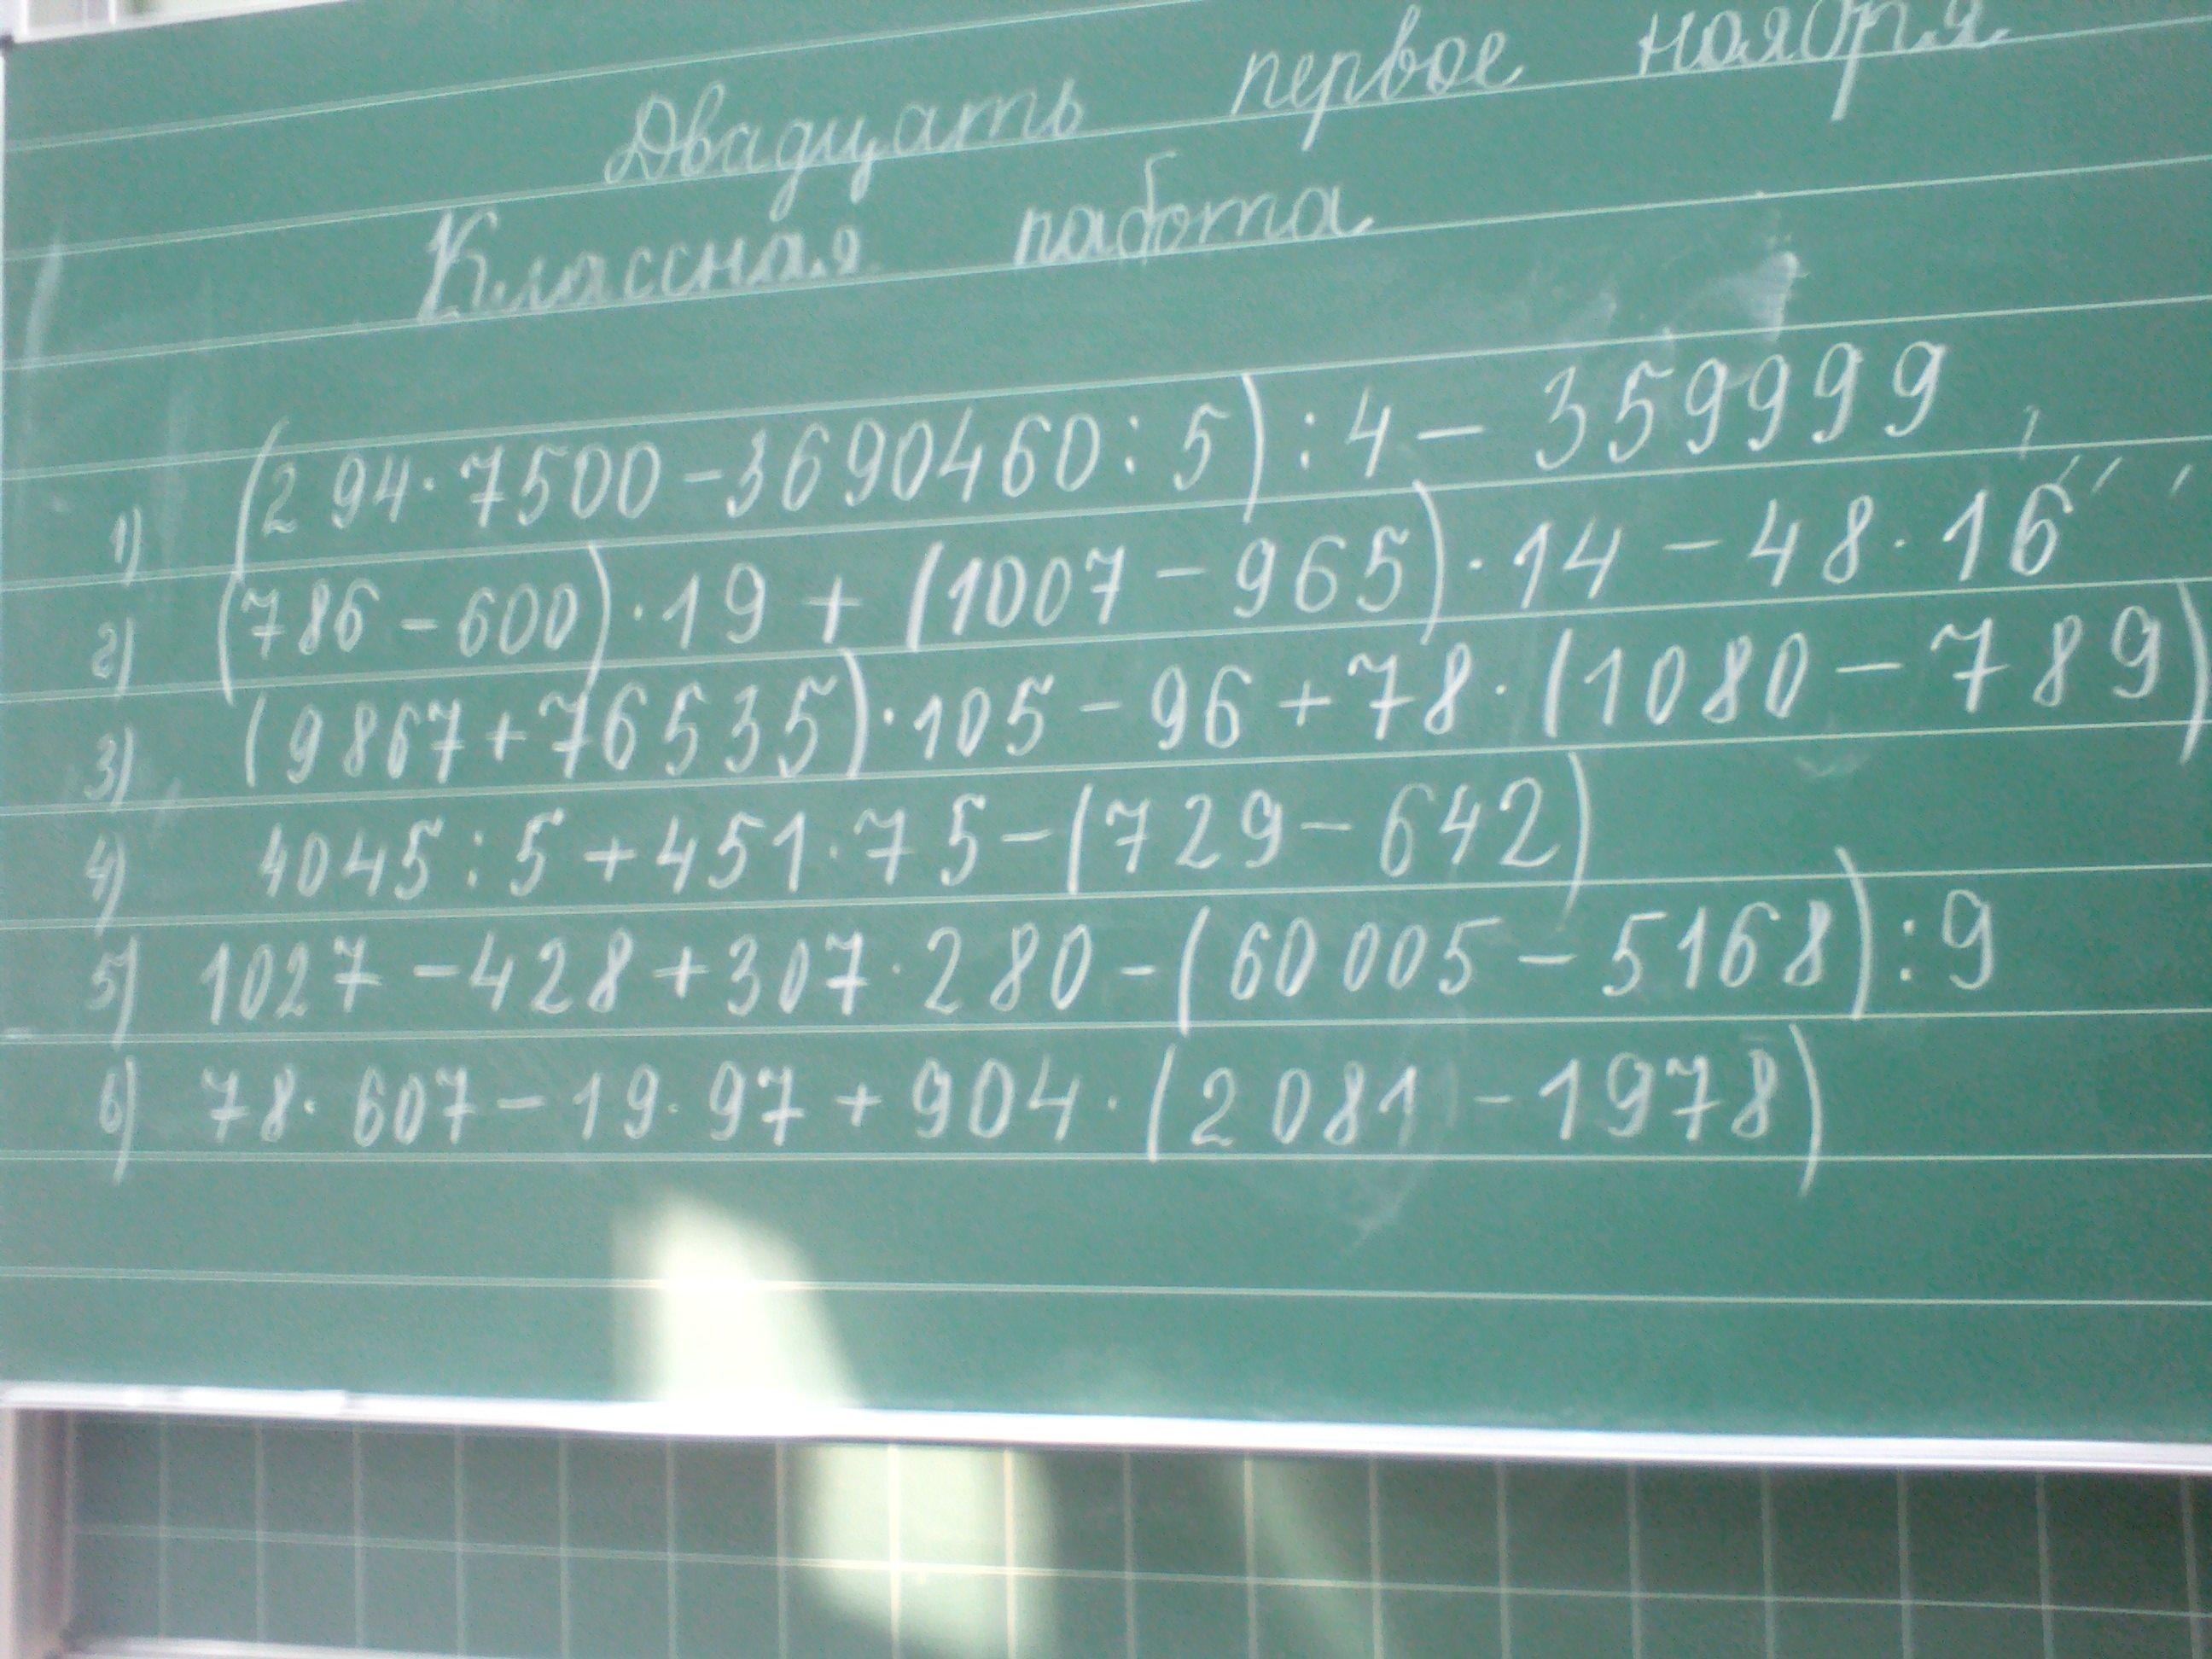 Двадцать первое ноября
Классная работа
1) (294·7500-3690460:5):4-359999
2) (786-600)·19+(1007-965)·14-48·16
3) (9867+76535)·105-96+78·(1080-789)
4) 4045:5+451·75-(729-642)
5) 1027-428+307·280-(60005-5168):9
6) 78·607-19·97+904·(2081-1978)